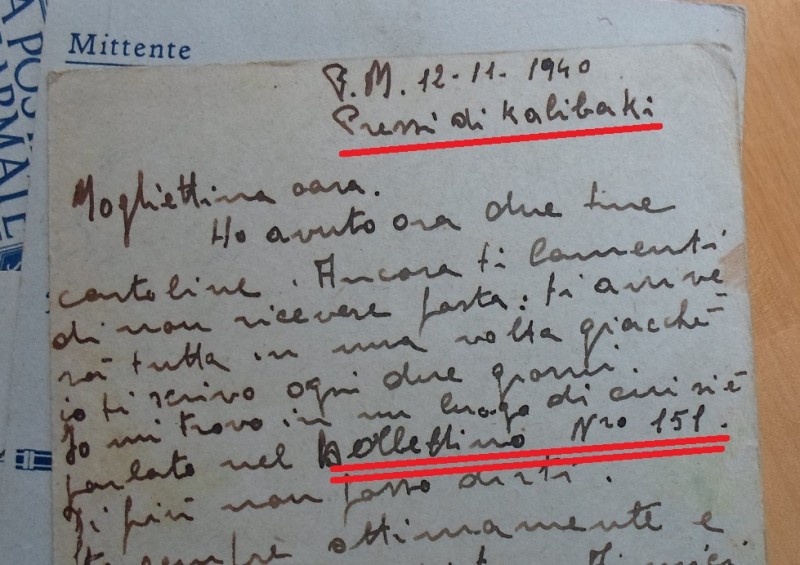 Mittente
P.M. 12-11-1940
Pressi di Kalibaki
Mogliettina cara.
Ho avuto ora due tue
cartoline. Ancora ti lamenti
di non ricevere posta: ti arrive
rà tutta in una volta giacchè
io ti scrivo ogni due giorni.
Io mi trovo in un luogo di cui si è
parlato nel Bollettino Nro 151.
Di più non posso dirti.
sempre ottimamente e